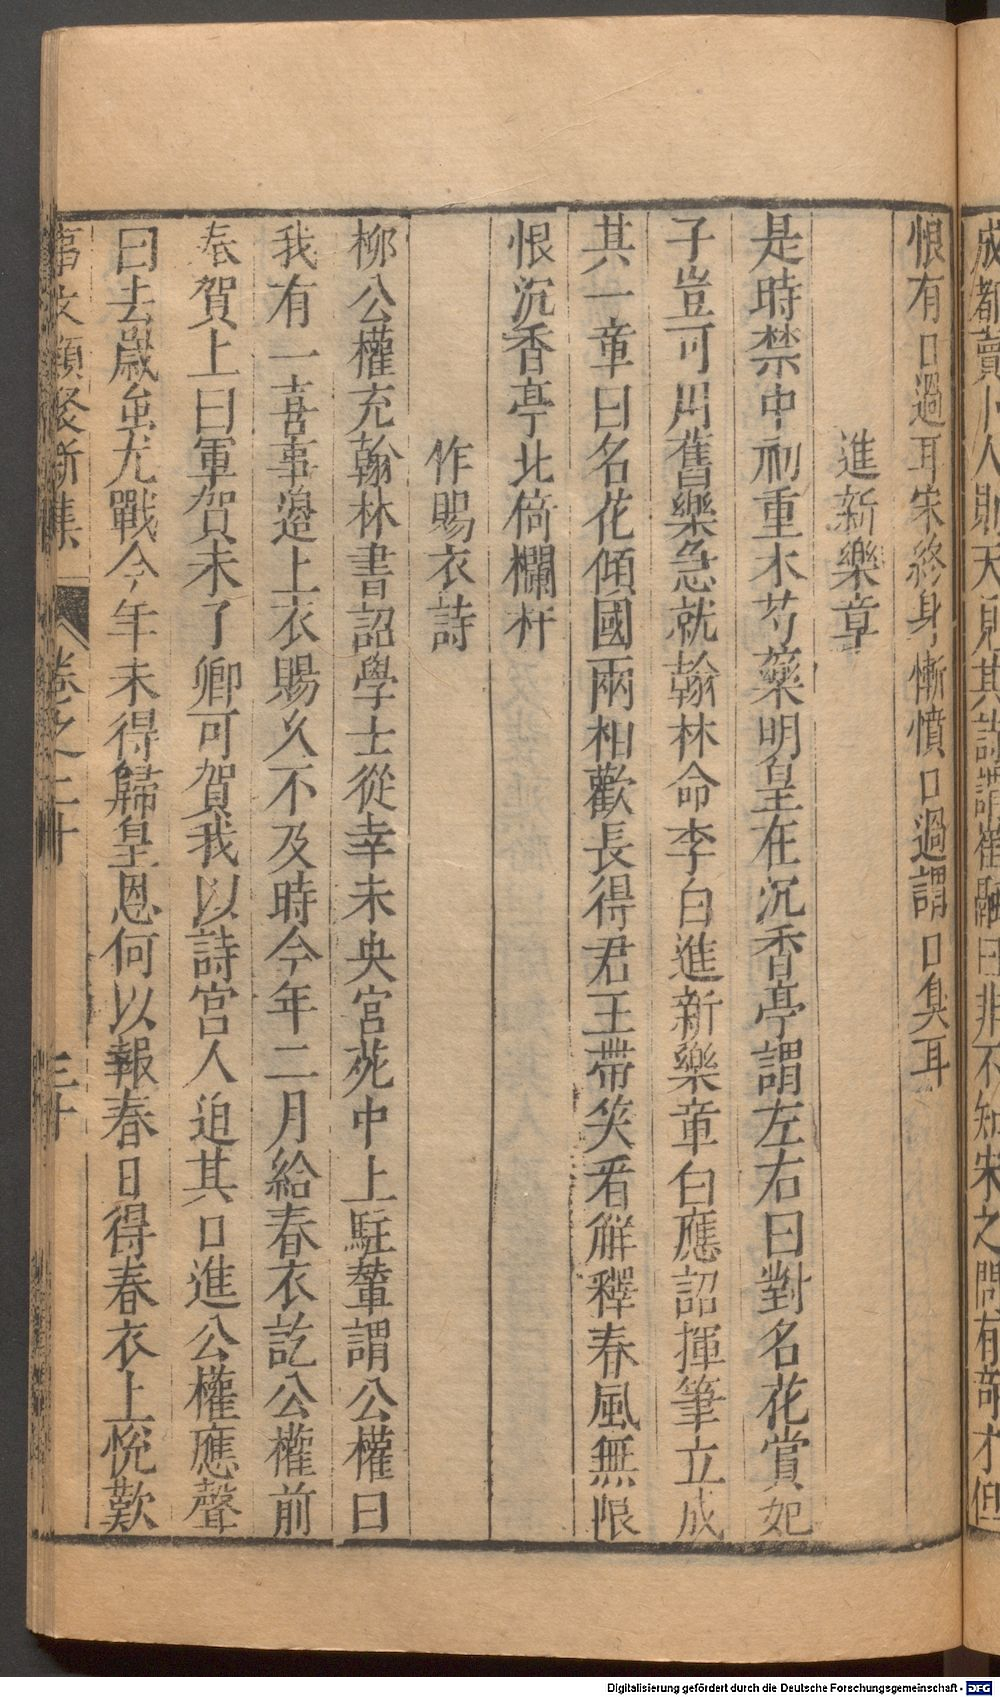 成都賣卜人則天見其詩謂崔融曰非不知宋之問有奇才但
恨有口過耳宋終身慚憤口過謂口臭耳
進新樂章
是時禁中初重木芍藥明皇在沉香亭謂左右曰對名花賞妃
子豈可用舊樂急就翰林命李白進新樂章白應詔揮筆立成
其一章曰名花傾國兩相歡長得君王帶笑看觧釋春風無限
恨沉香亭北倚欄杆
作賜衣詩
柳公權充翰林書詔學士從幸未央宮苑中上駐輦謂公權曰
我有一喜事邉上衣賜久不及時今年二月給春衣訖公權前
奉賀上曰單賀未了卿可賀我以詩宮人迫其口進公權應聲
曰去嵗虽尤戰今年未得歸皇恩何以報春日得春衣上悅歎
事文類聚新集 卷之二十 三十
Digitalisierung gefördert durch die Deutsche Forschungsgemeinschaft - DFG